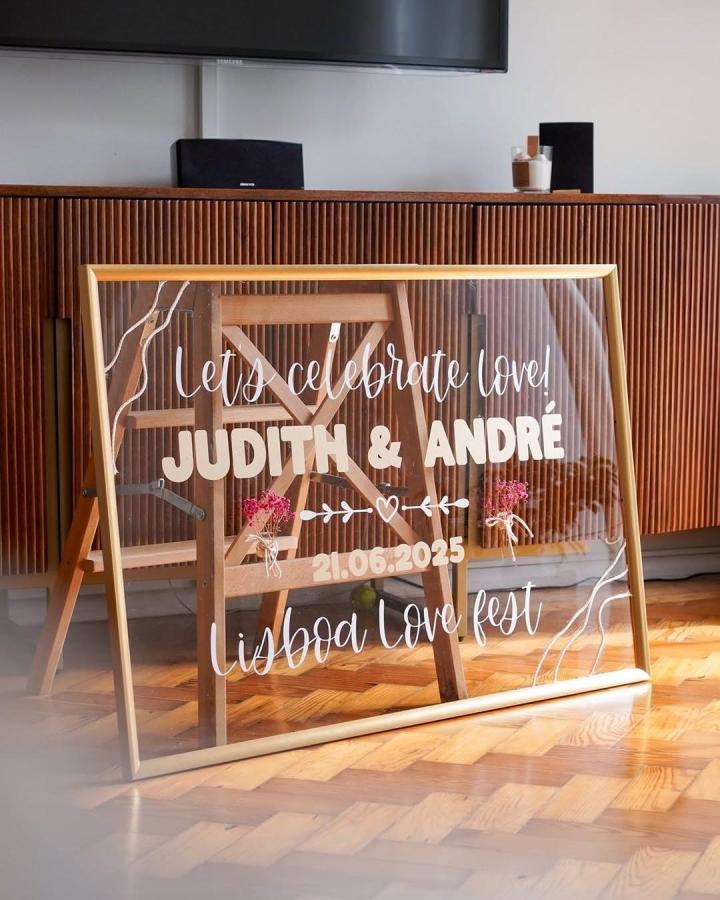 SAMSUNG
Let's celebrate love!
JUDITH & ANDRÉ
21.06.2025
Lisboa Love fest